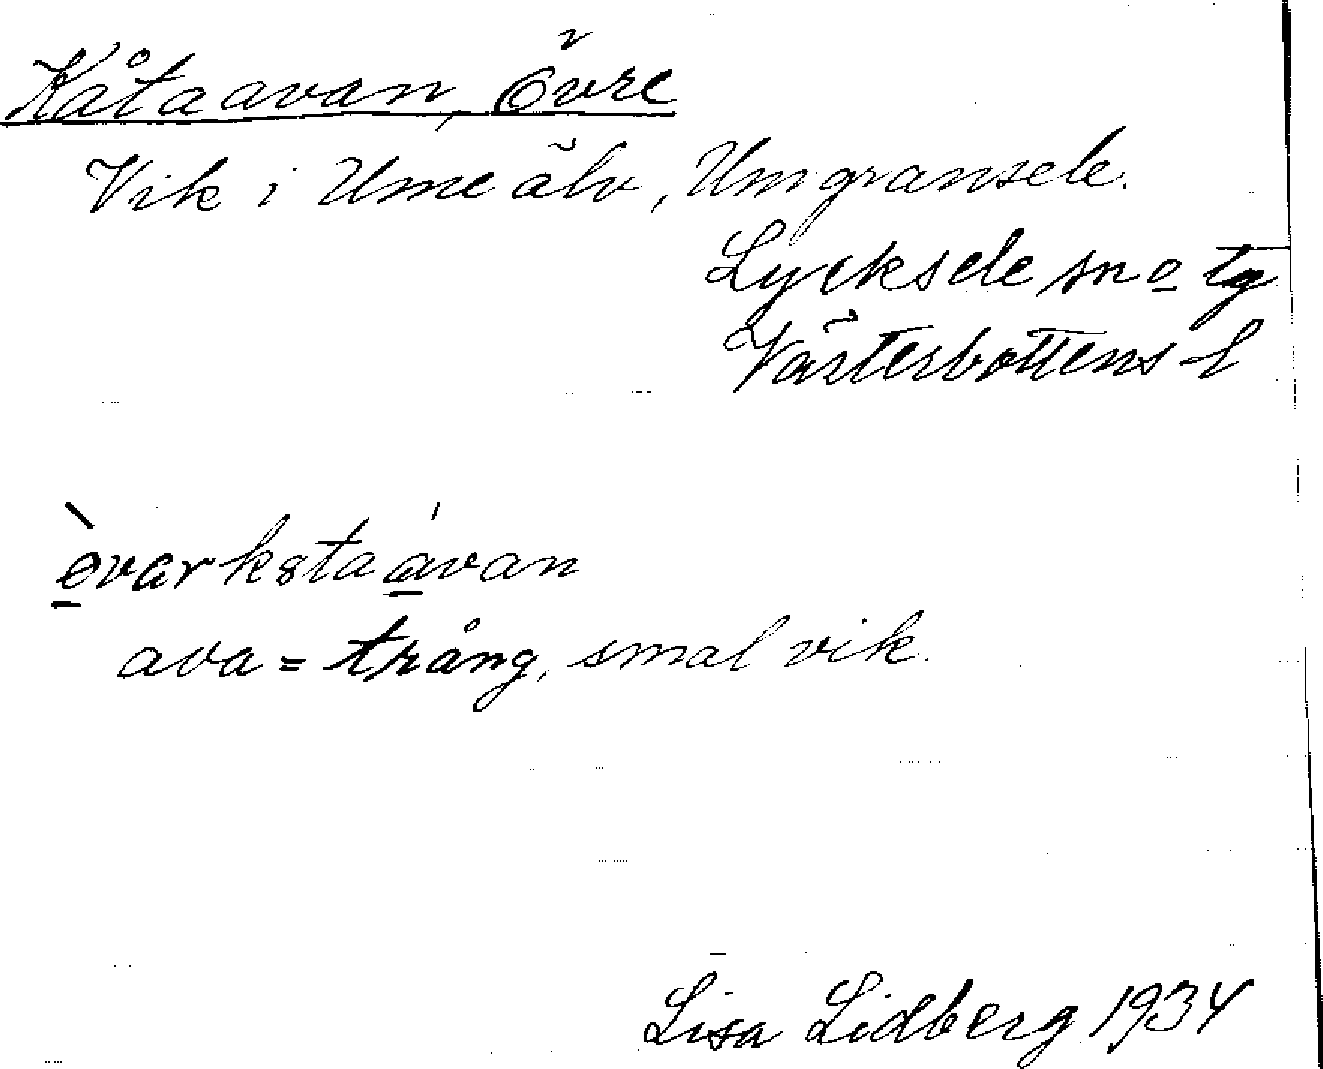 Kåtaavan, Övre
Vik i Ume älv, Umgransele.
Lycksele sn o tg
Västerbottens l
ə̀var kɞtaávan
ava = trång, smal vik.
Lisa Lidberg 1934